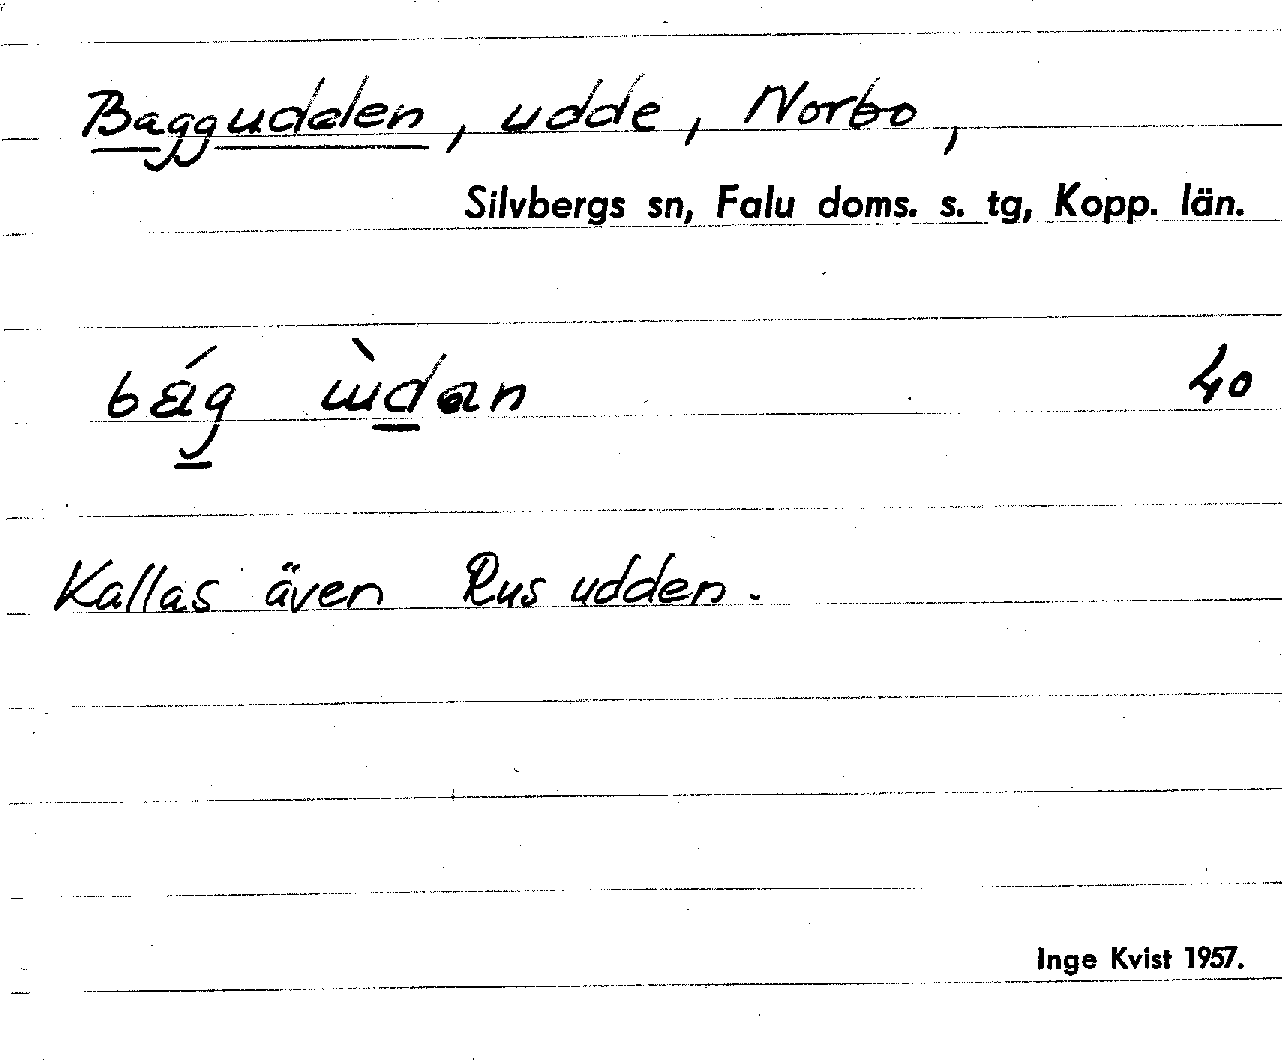 Baggudden, udde, Norbo,
Silvbergs sn, Falu doms. s. tg, Kopp. län.
40
Kallas även Rus udden.
Inge Kvist 1957.